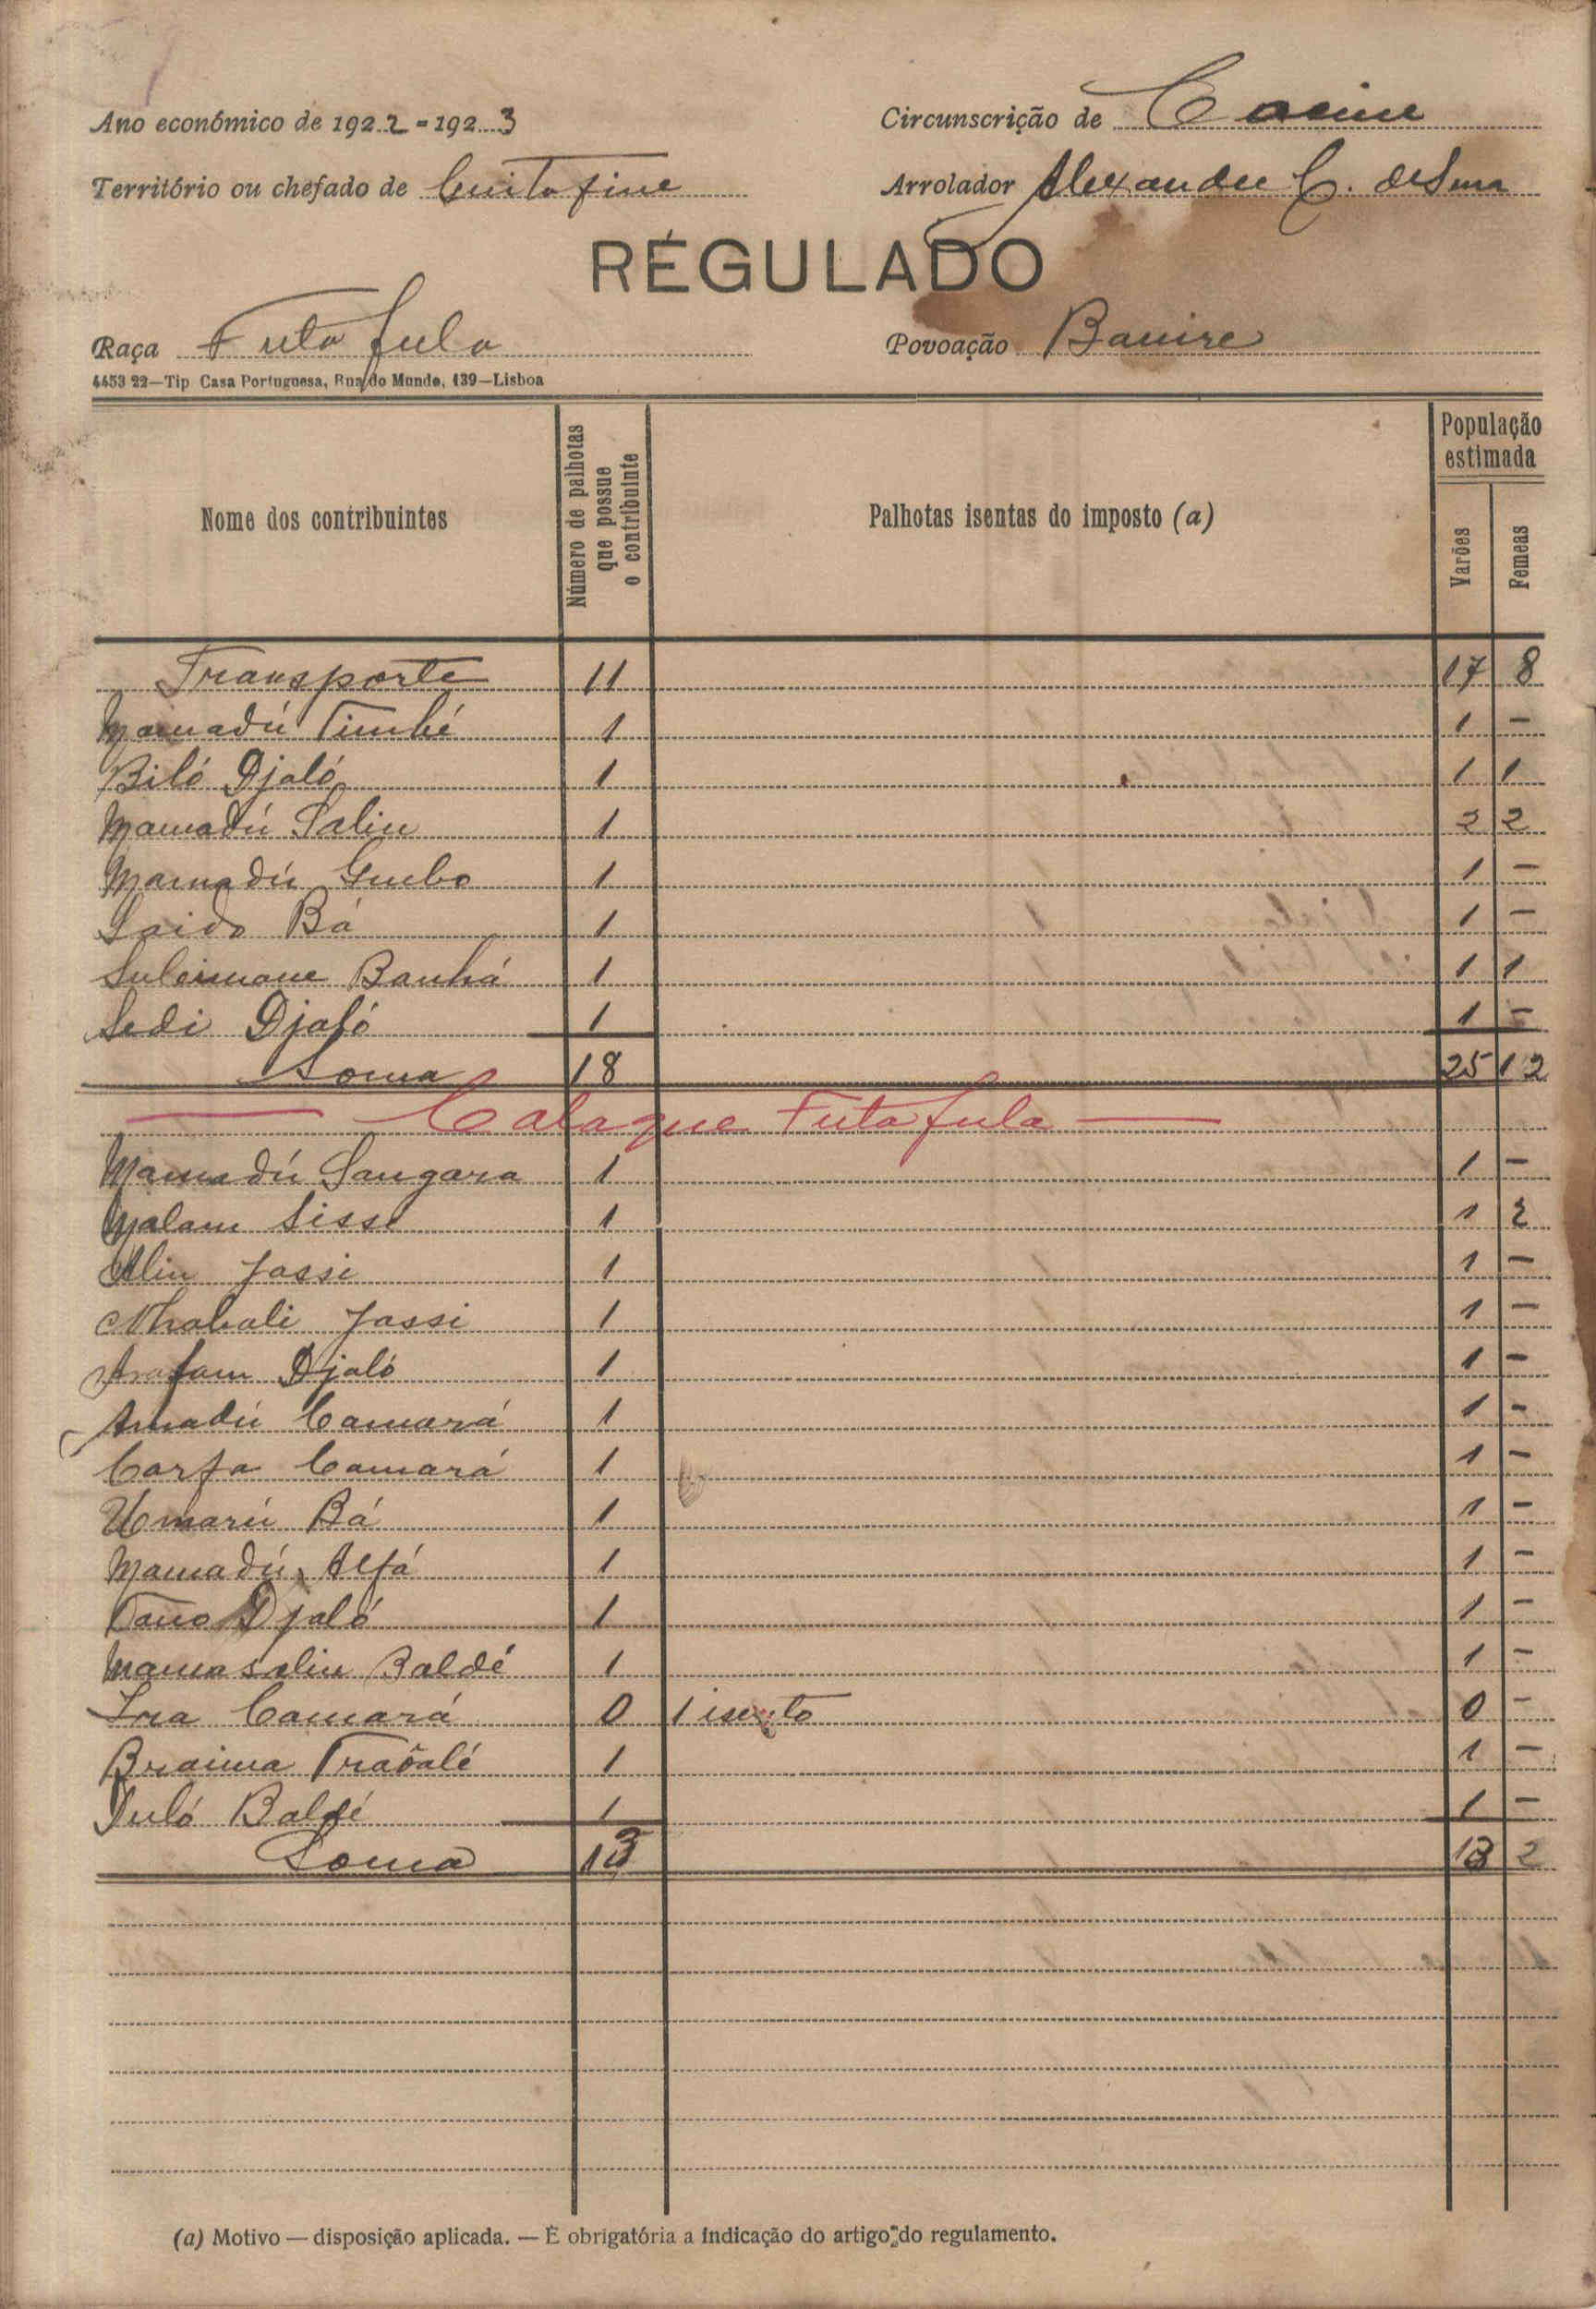 Ano económico de 1922-1923
Circunscrição de Cacine
Território ou chefado de Guitafine
Arrolador Alexandre C. de Sena
RÉGULADO
Raça Futa fula
Povoação Banire
4453 22—Tip Casa Portuguesa, Rua do Mundo, 139—Lisboa
Nome dos contribuintes
Número de palhotas que possue o contribuinte
Palhotas isentas do imposto (a)
População estimada
Varões
Femeas
Transporte 11 17 8
Mamadú Timbé 1 1 -
Biló Djaló 1 1 1
Mamadú Saliu 1 2 2
Mamadú Gumbo 1 1 -
Saido Bá 1 1 -
Suleimane Banhá 1 1 1
Sedi Djaló 1 1 -
Soma 18 25 12
Calaque Futa fula
Mamadú Sangara 1 1 -
Malam Sisse 1 1 2
Aliu Jassi 1 1 -
Nhabali Jassi 1 1 -
Arafam Djaló 1 1 -
Amadú Camará 1 1 -
Carfa Camará 1 1 -
Umarú Bá 1 1 -
Mamadú Alfá 1 1 -
Tano Djaló 1 1 -
Mamasaliu Baldé 1 1 -
Camará 0 1 isento 0 -
Braima Traoalé 1 1 -
Juló Baldé 1 1 -
Soma 13 13 2
(a) Motivo — disposição aplicada. — É obrigatória a indicação do artigo do regulamento.